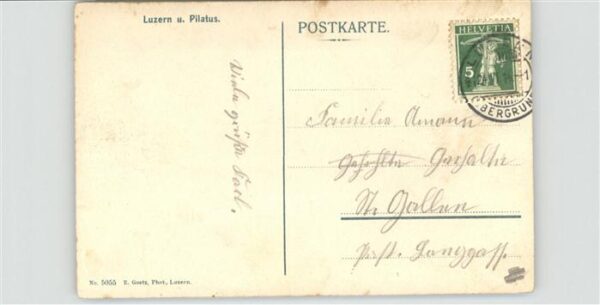 Luzern u. Pilatus.
POSTKARTE.
HELVETIA
5
OBERGRUND
Viele grüße Karl.
Familie Amann
St. Gallen
Post. Langgass.
No. 5055 E. Goetz, Phot., Luzern.